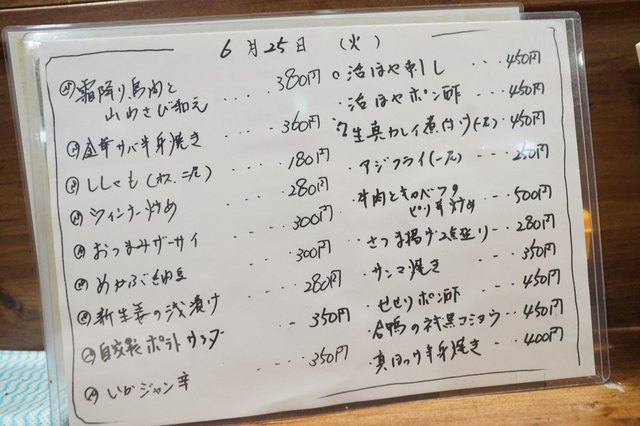 6月25日 (火)
霜降り馬肉と
山わさび和え ... 380円
金華サバ半身焼き ... 360円
ししゃも(オス、二尾) 180円
ウインナー炒め ... 280円
おつまみザーサイ ... 300円
めかぶ納豆 ... 300円
新生姜の浅漬け ... 280円
自家製ポテトサラダ 350円
いかジャン辛 .... 350円
活ほや刺し ... 450円
活ほやポン酢 ... 450円
生真カレイ煮付け(一尾) 450円
アジフライ(一尾) ... 250円
牛肉とキャベツの
ピリ辛炒め ... 500円
さつま揚げ2点盛り ... 280円
サンマ焼き ... 350円
せせりポン酢 ... 450円
合鴨の神黒コショウ ... 450円
真ほっけ半身焼き ... 400円